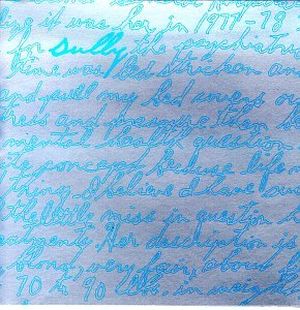 ling it was her in 1977-78
for Sully the psychiatri
time was bed stricken an
and pull my bed covers ov
this and measure them b
mental health question
it concern because life
thing. I believe I have
the little miss in question
ments. Her description is
blond, very fair, about
70 to 90 lbs. in weight